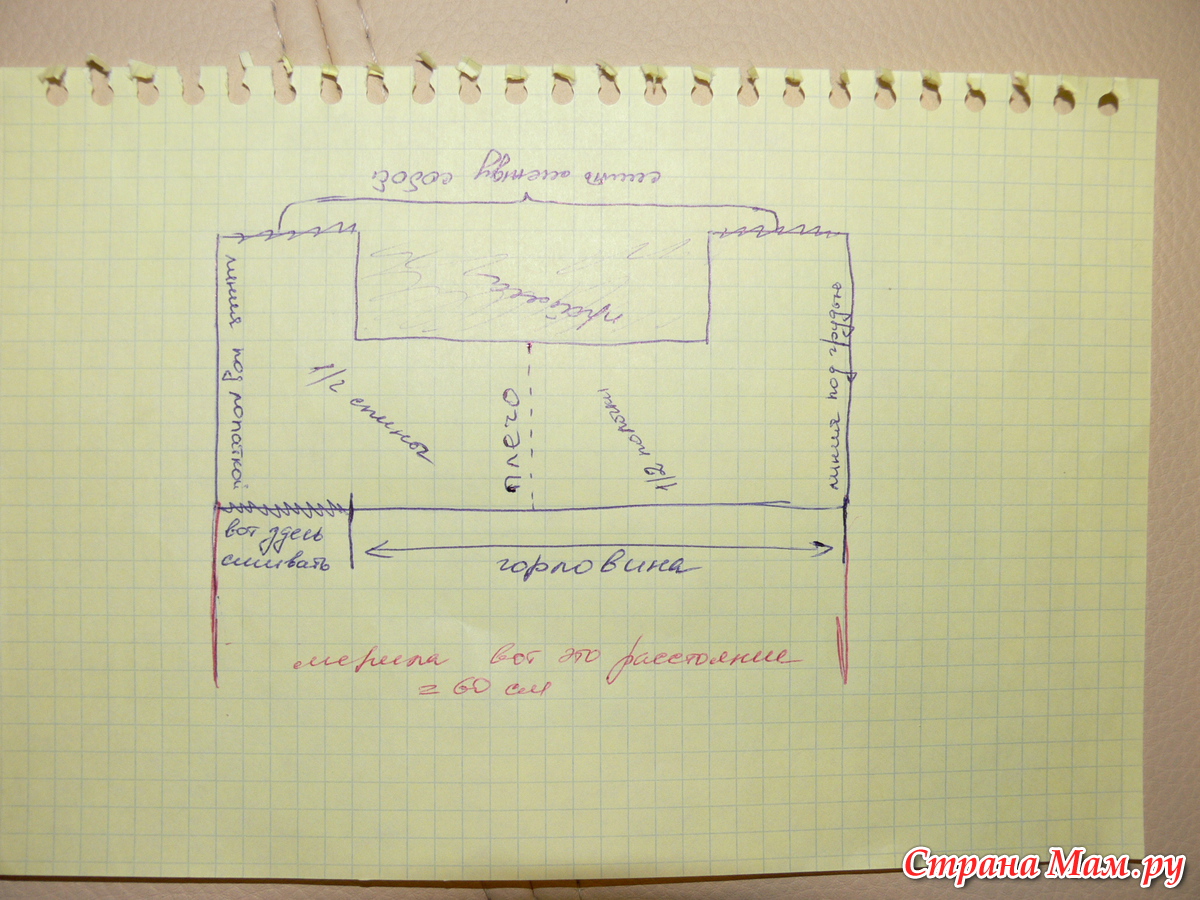 сшить между собой
пройма
линия под лопаткой
1/2 спины
плечо
1/2 полочки
линия под грудью
вот здесь
сшивать
горловина
мерила вот это расстояние
= 60 см
Страна Мам.ру